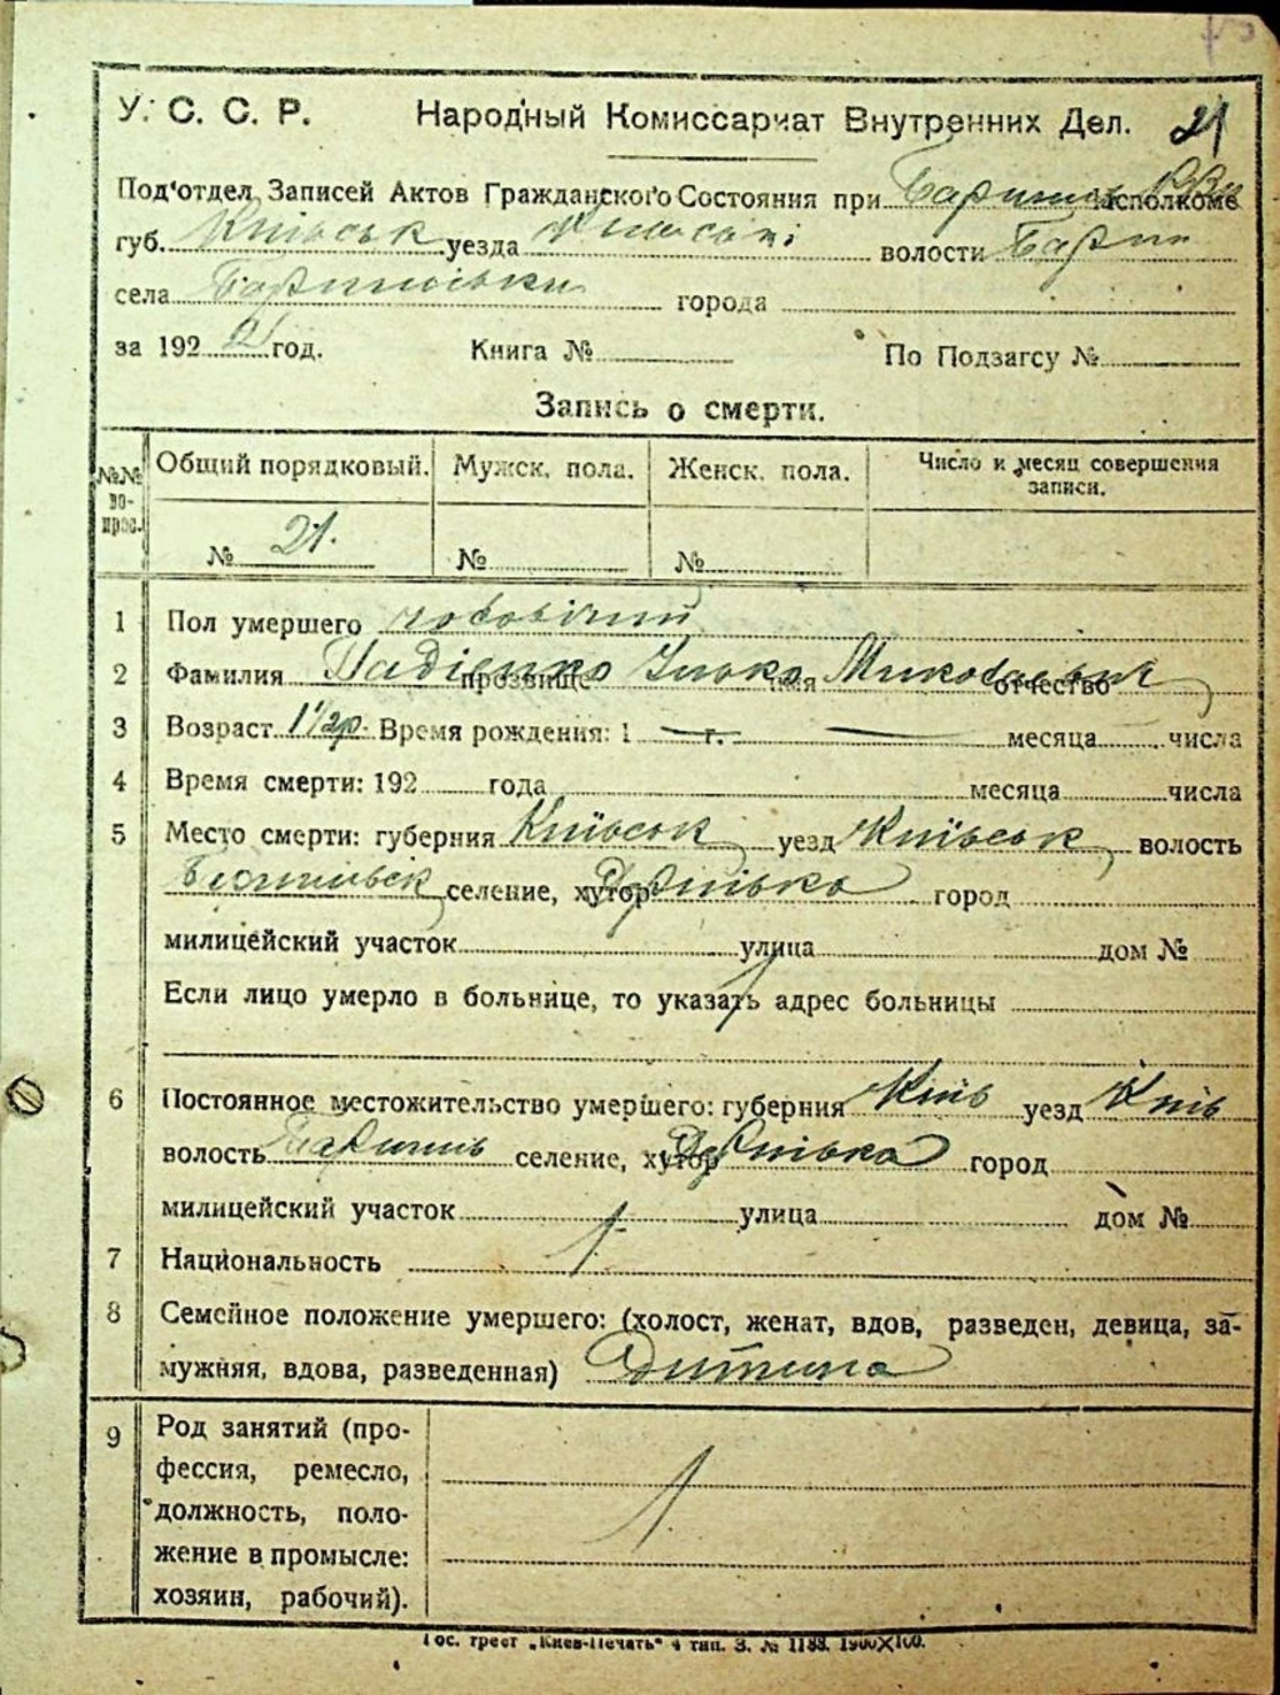 У. С. С. Р. Народный Комиссариат Внутренних Дел. 21
Под'отдел Записей Актов Гражданского Состояния при исполкоме
губ. Київськ уезда волости
села города
за 192 год. Книга № По Подзагсу №
Запись о смерти.
№№ вопрос. Общий порядковый. Мужск. пола. Женск. пола. Число и месяц совершения записи.
№ 21. № №
1 Пол умершего чоловічий
2 Фамилия прозвище Ілько имя отчество
3 Возраст 1½ р. Время рождения: 1 г. месяца числа
4 Время смерти: 192 года месяца числа
5 Место смерти: губерния Київськ уезд Київськ волость
селение, хутор город
милицейский участок улица дом №
Если лицо умерло в больнице, то указать адрес больницы
6 Постоянное местожительство умершего: губерния Київ уезд Київ
волость селение, хутор город
милицейский участок улица дом №
7 Национальность
8 Семейное положение умершего: (холост, женат, вдов, разведен, девица, за-
мужняя, вдова, разведенная) Дитина
9 Род занятий (про-
фессия, ремесло,
должность, поло-
жение в промысле:
хозяин, рабочий).
Гос. трест „Киев-Печать“ 4 тип. З. № 1188. 1900×100.